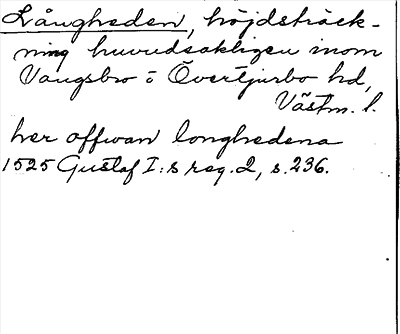 Långheden, höjdsträck-
ning huvudsakligen inom
Vangsbro o Övertjurbo hd,
Västm. l.
her offwan longhedena
1525 Gustaf I:s reg. 2, s. 236.